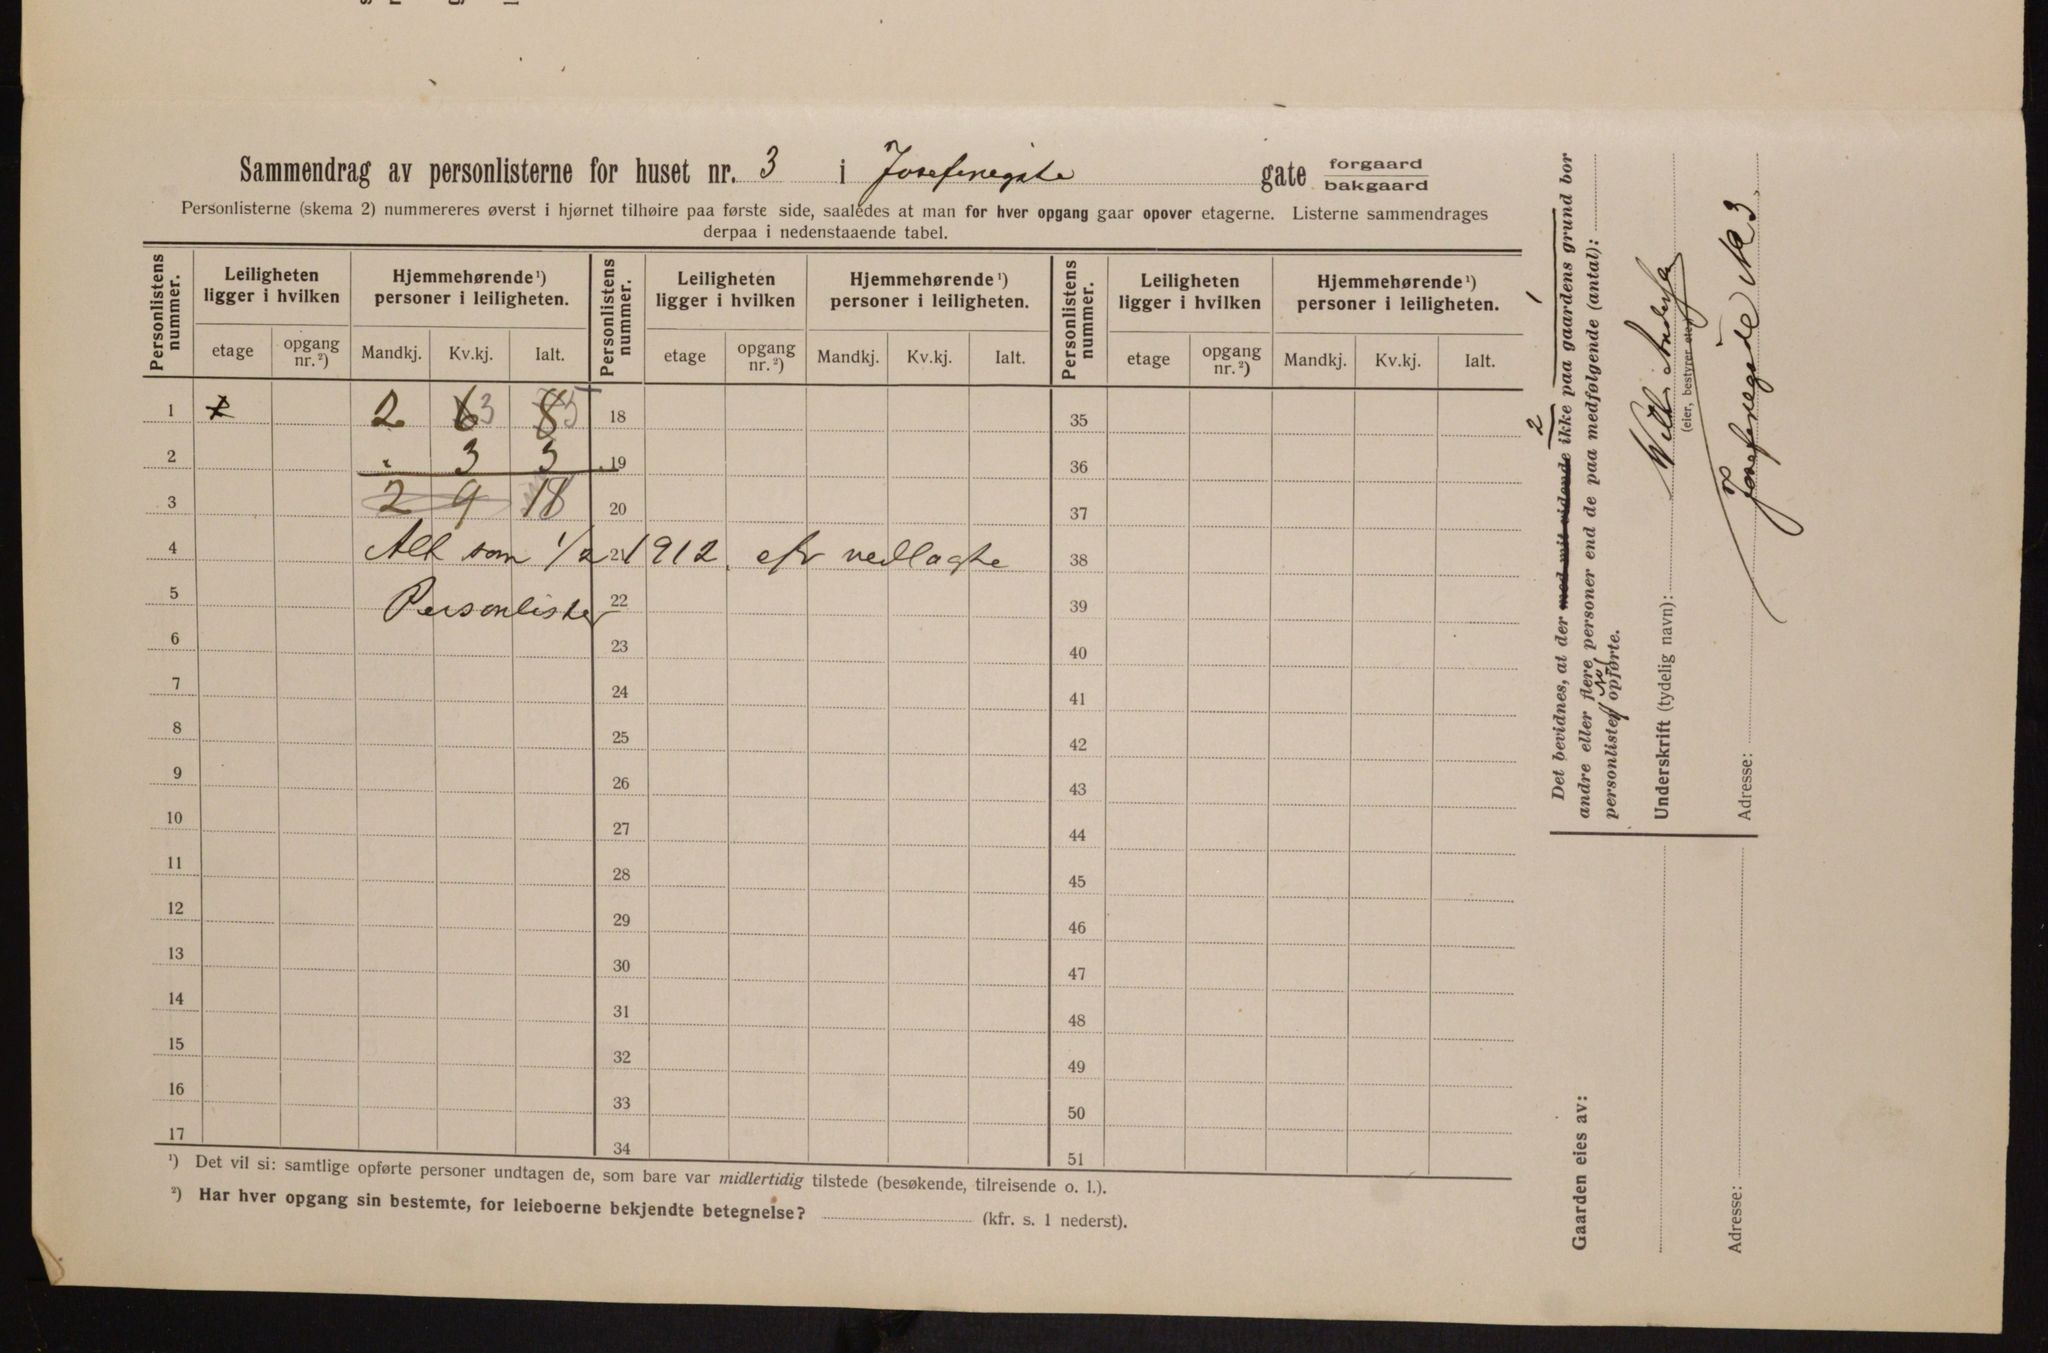 Sammendrag av personlisterne for huset nr. 3 i Josefinegate gate forgaard bakgaard
Personlisterne (skema 2) nummereres øverst i hjørnet tilhøire paa første side, saaledes at man for hver opgang gaar opover etagerne. Listerne sammendrages
derpaa i nedenstaaende tabel.
Personlistens nummer. Leiligheten ligger i hvilken Hjemmehørende¹) personer i leiligheten. Personlistens nummer. Leiligheten ligger i hvilken Hjemmehørende¹) personer i leiligheten. Personlistens nummer. Leiligheten ligger i hvilken Hjemmehørende¹) personer i leiligheten.
etage opgang nr.²) Mandkj. Kv.kj. Ialt. etage opgang nr.²) Mandkj. Kv.kj. Ialt. etage opgang nr.²) Mandkj. Kv.kj. Ialt.
1 2 6 3 8 5 18 35
2 3 3 19 36
3 2 9 20 37
4 Alt som 1/2 21 1912. efr vedlagte 38
5 Personlister 22 39
6 23 40
7 24 41
8 25 42
9 26 43
10 27 44
11 28 45
12 29 46
13 30 47
14 31 48
15 32 49
16 33 50
17 34 51
¹) Det vil si: samtlige opførte personer undtagen de, som bare var midlertidig tilstede (besøkende, tilreisende o. l.).
²) Har hver opgang sin bestemte, for leieboerne bekjendte betegnelse? (kfr. s. 1 nederst).
2 1
Det bevidnes, at der med mit vidende ikke paa gaardens grund bor
andre eller flere personer end de paa medfølgende (antal):
personlister opførte.
Underskrift (tydelig navn): Wilh.
(eier, bestyrer etc.)
Adresse: Josefinegade No 3
Gaarden eies av:
Adresse: